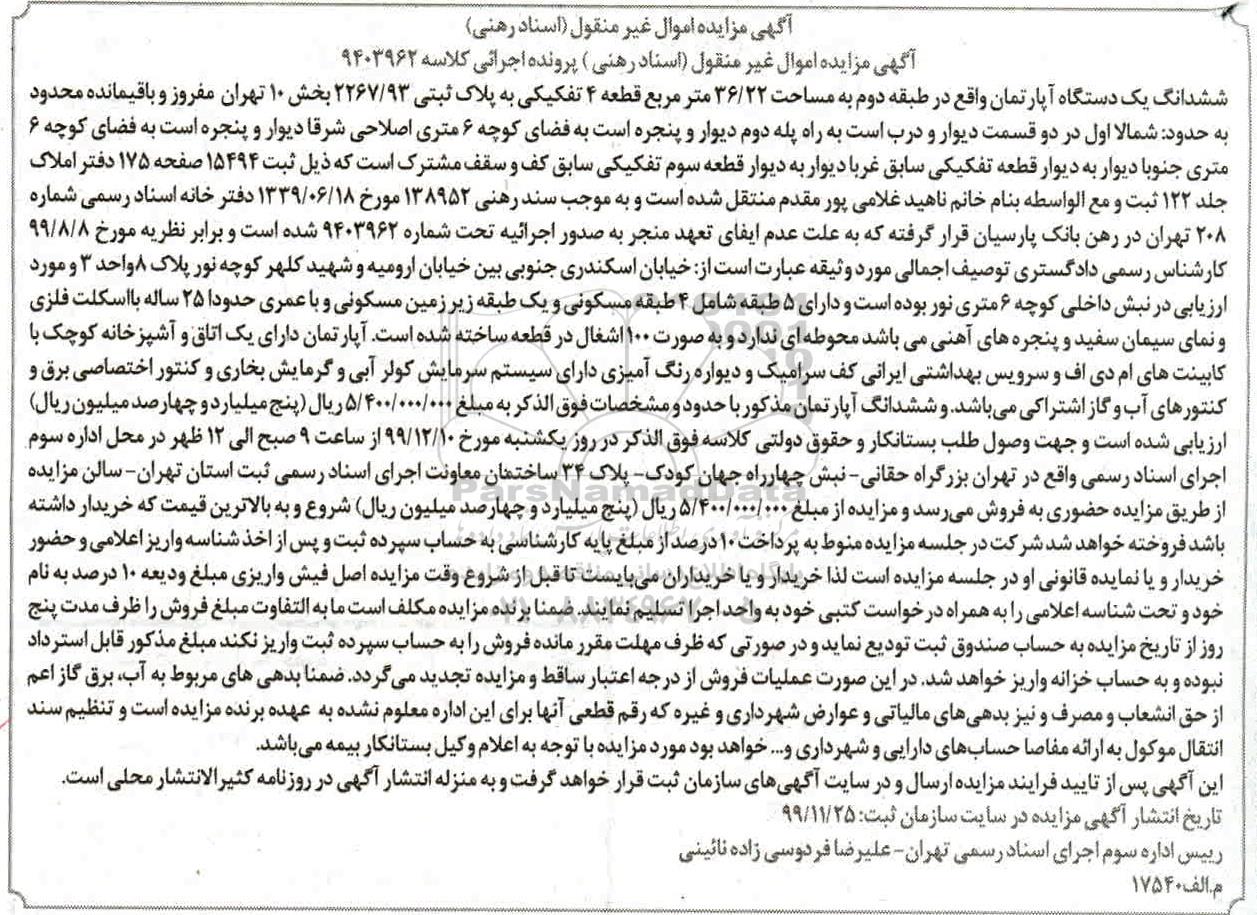 آگهی مزایده اموال غیر منقول (اسناد رهنی)
آگهی مزایده اموال غیر منقول (اسناد رهنی) پرونده اجرائی کلاسه ۹۴۰۳۹۶۲
ششدانگ یک دستگاه آپارتمان واقع در طبقه دوم به مساحت ۳۶/۲۲ متر مربع قطعه ۴ تفکیکی به پلاک ثبتی ۲۲۶۷/۹۳ بخش ۱۰ تهران مفروز و باقیمانده محدود
به حدود: شمالا اول در دو قسمت دیوار و درب است به راه پله دوم دیوار و پنجره است به فضای کوچه ۶ متری اصلاحی شرقا دیوار و پنجره است به فضای کوچه ۶
متری جنوبا دیوار به دیوار قطعه تفکیکی سابق غربا دیوار به دیوار قطعه سوم تفکیکی سابق کف و سقف مشترک است که ذیل ثبت ۱۵۴۹۴ صفحه ۱۷۵ دفتر املاک
جلد ۱۲۲ ثبت و مع الواسطه بنام خانم ناهید غلامی پور مقدم منتقل شده است و به موجب سند رهنی ۱۳۸۹۵۲ مورخ ۱۳۳۹/۰۶/۱۸ دفتر خانه اسناد رسمی شماره
۲۰۸ تهران در رهن بانک پارسیان قرار گرفته که به علت عدم ایفای تعهد منجر به صدور اجرائیه تحت شماره ۹۴۰۳۹۶۲ شده است و برابر نظریه مورخ ۹۹/۸/۸
کارشناس رسمی دادگستری توصیف اجمالی مورد وثیقه عبارت است از: خیابان اسکندری جنوبی بین خیابان ارومیه و شهید کلهر کوچه نور پلاک ۸واحد ۳ و مورد
ارزیابی در نبش داخلی کوچه ۶ متری نور بوده است و دارای ۵ طبقه شامل ۴ طبقه مسکونی و یک طبقه زیر زمین مسکونی و با عمری حدودا ۲۵ ساله بااسکلت فلزی
و نمای سیمان سفید و پنجره های آهنی می باشد محوطه ای ندارد و به صورت ۱۰۰ اشغال در قطعه ساخته شده است. آپارتمان دارای یک اتاق و آشپزخانه کوچک با
کابینت های ام دی اف و سرویس بهداشتی ایرانی کف سرامیک و دیواره رنگ آمیزی دارای سیستم سرمایش کولر آبی و گرمایش بخاری و کنتور اختصاصی برق و
کنتورهای آب و گاز اشتراکی می‌باشد. و ششدانگ آپارتمان مذکور با حدود و مشخصات فوق الذکر به مبلغ ۵/۴۰۰/۰۰۰/۰۰۰ ریال (پنج میلیارد و چهارصد میلیون ریال)
ارزیابی شده است و جهت وصول طلب بستانکار و حقوق دولتی کلاسه فوق الذکر در روز یکشنبه مورخ ۹۹/۱۲/۱۰ از ساعت ۹ صبح الی ۱۲ ظهر در محل اداره سوم
اجرای اسناد رسمی واقع در تهران بزرگراه حقانی- نبش چهارراه جهان کودک- پلاک ۳۴ ساختمان معاونت اجرای اسناد رسمی ثبت استان تهران- سالن مزایده
از طریق مزایده حضوری به فروش می‌رسد و مزایده از مبلغ ۵/۴۰۰/۰۰۰/۰۰۰ ریال (پنج میلیارد و چهارصد میلیون ریال) شروع و به بالاترین قیمت که خریدار داشته
باشد فروخته خواهد شد شرکت در جلسه مزایده منوط به پرداخت ۱۰ درصد از مبلغ پایه کارشناسی به حساب سپرده ثبت و پس از اخذ شناسه واریز اعلامی و حضور
خریدار و یا نماینده قانونی او در جلسه مزایده است لذا خریدار و یا خریداران می‌بایست تا قبل از شروع وقت مزایده اصل فیش واریزی مبلغ ودیعه ۱۰ درصد به نام
خود و تحت شناسه اعلامی را به همراه درخواست کتبی خود به واحد اجرا تسلیم نمایند. ضمنا برنده مزایده مکلف است ما به التفاوت مبلغ فروش را ظرف مدت پنج
روز از تاریخ مزایده به حساب صندوق ثبت تودیع نماید و در صورتی که ظرف مهلت مقرر مانده فروش را به حساب سپرده ثبت واریز نکند مبلغ مذکور قابل استرداد
نبوده و به حساب خزانه واریز خواهد شد. در این صورت عملیات فروش از درجه اعتبار ساقط و مزایده تجدید می‌گردد. ضمنا بدهی های مربوط به آب، برق گاز اعم
از حق انشعاب و مصرف و نیز بدهی‌های مالیاتی و عوارض شهرداری و غیره که رقم قطعی آنها برای این اداره معلوم نشده به عهده برنده مزایده است و تنظیم سند
انتقال موکول به ارائه مفاصا حساب‌های دارایی و شهرداری و... خواهد بود مورد مزایده با توجه به اعلام وکیل بستانکار بیمه می‌باشد.
این آگهی پس از تایید فرایند مزایده ارسال و در سایت آگهی‌های سازمان ثبت قرار خواهد گرفت و به منزله انتشار آگهی در روزنامه کثیرالانتشار محلی است.
تاریخ انتشار آگهی مزایده در سایت سازمان ثبت: ۹۹/۱۱/۲۵
رییس اداره سوم اجرای اسناد رسمی تهران- علیرضا فردوسی زاده نائینی
م.الف۱۷۵۴۰
ParsNamadData